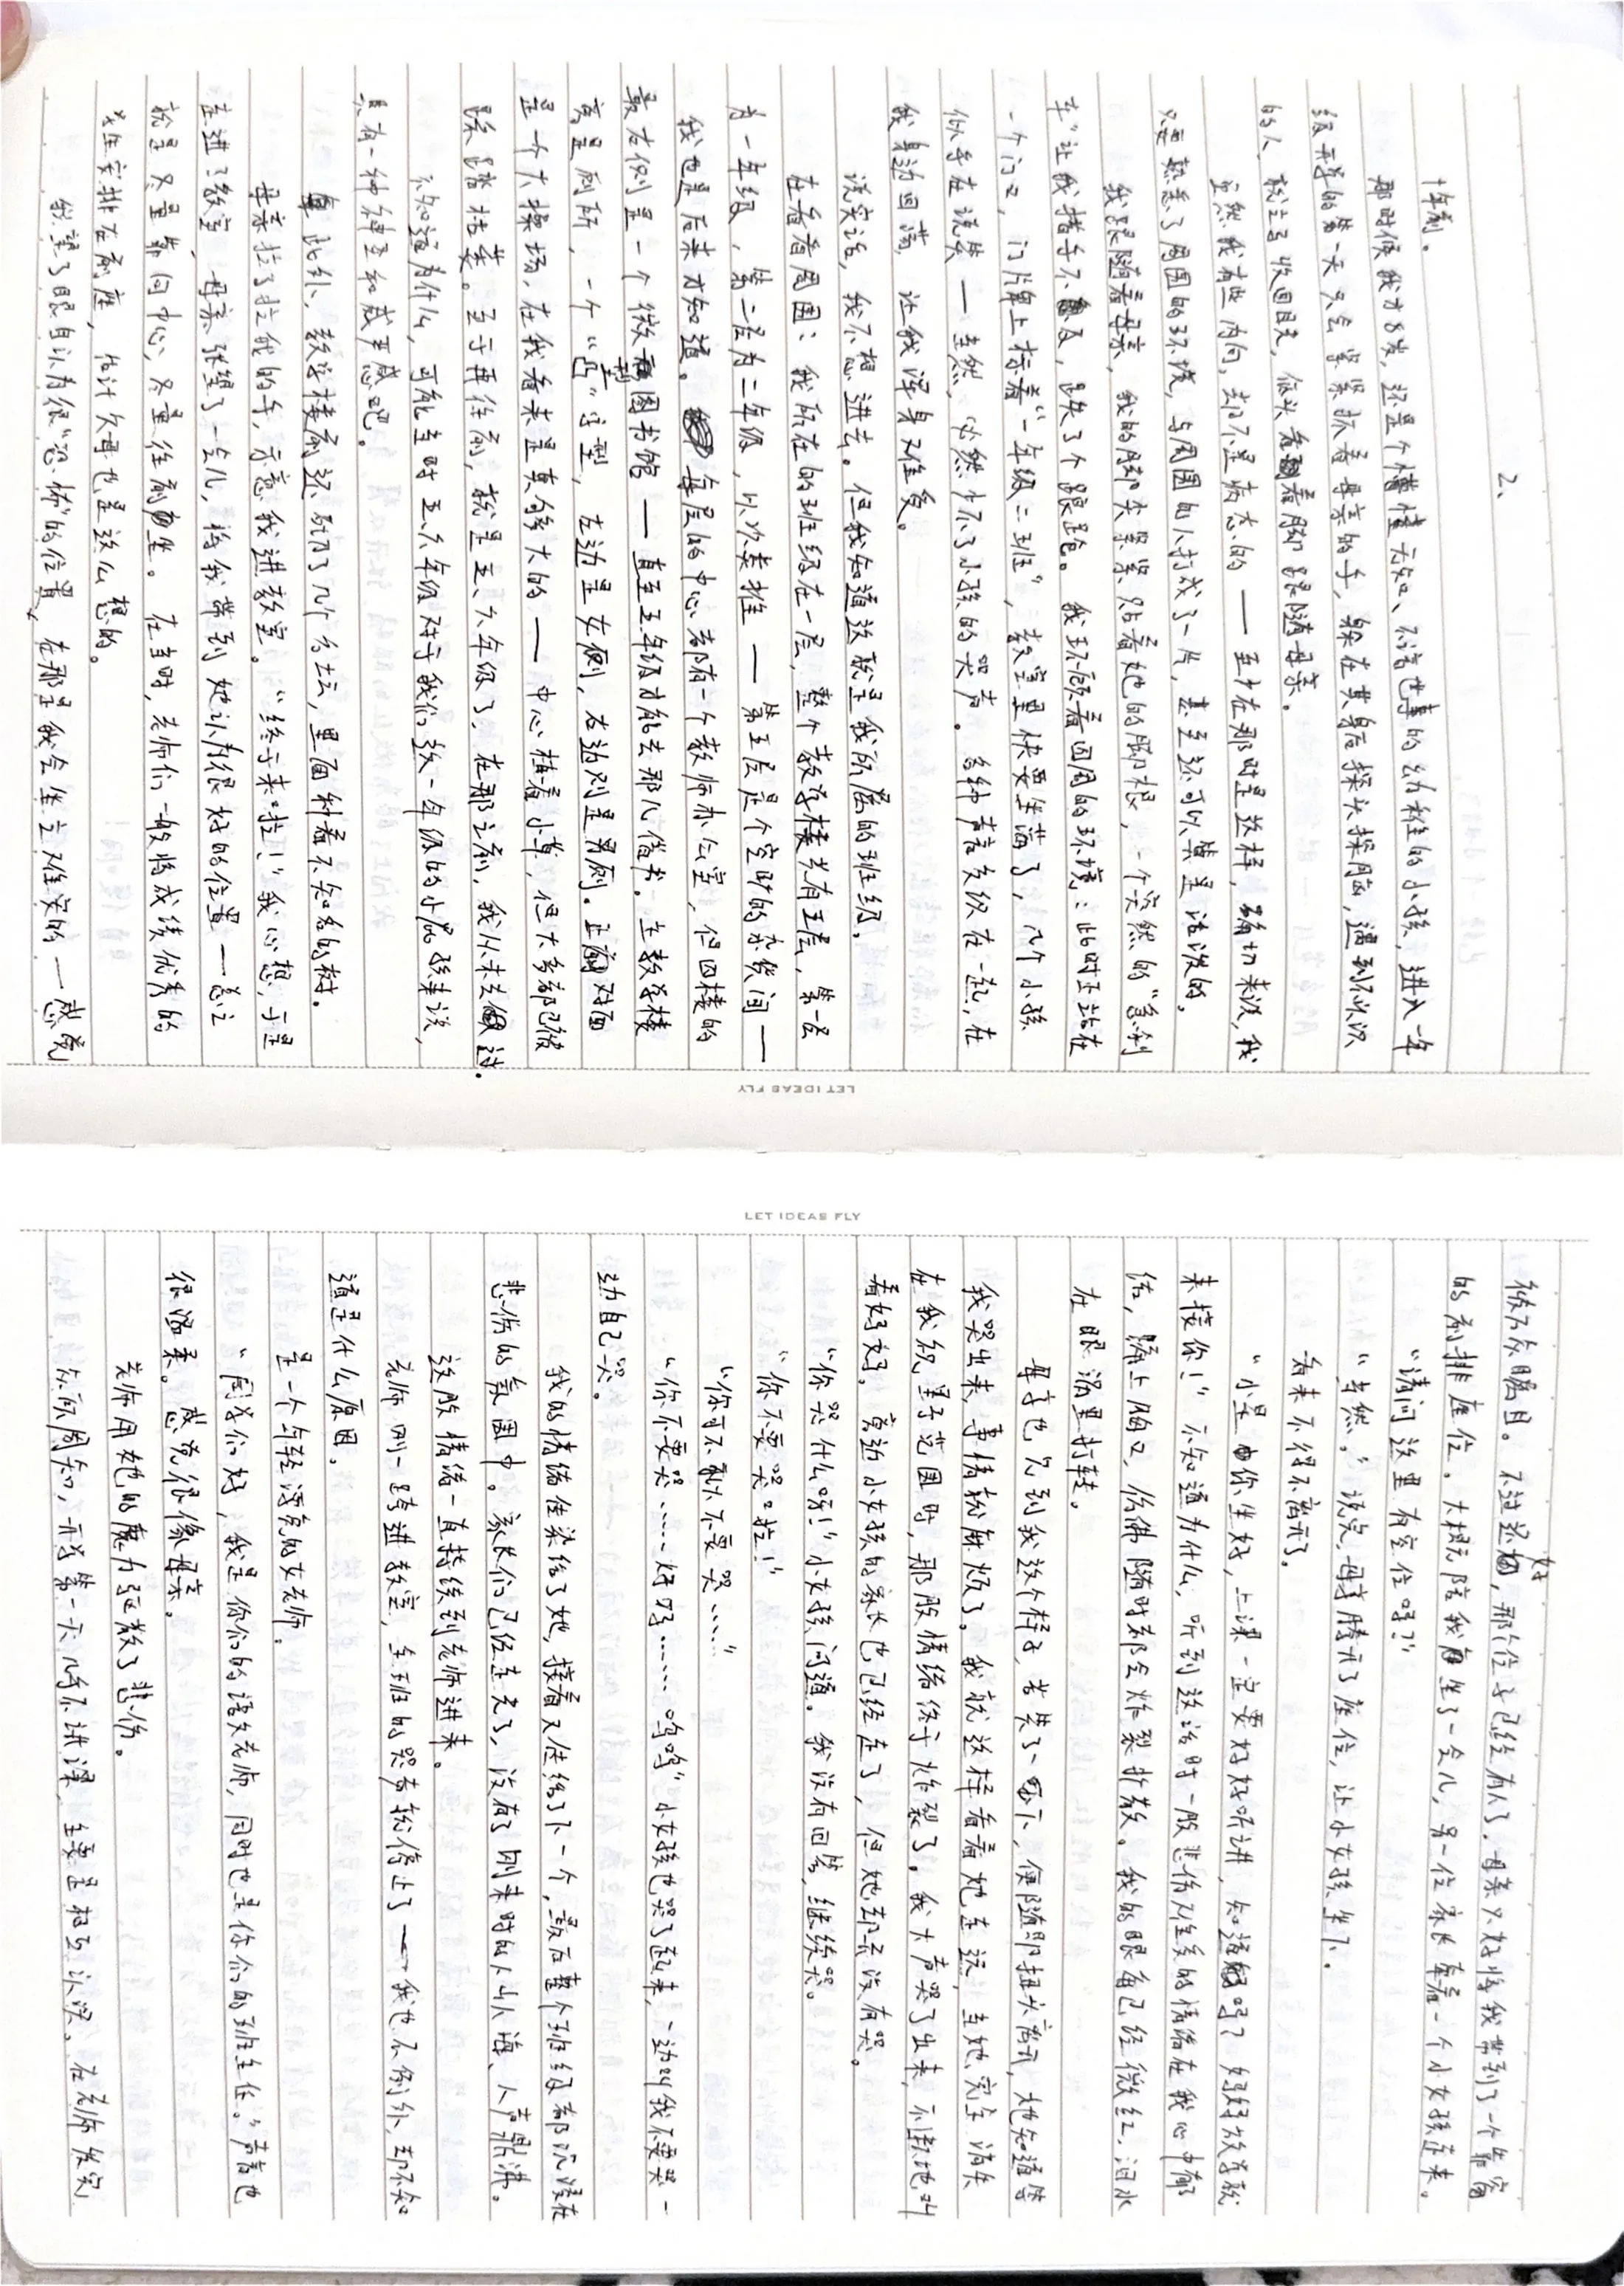 2、
十年前。
那时候我方8岁，还是个懵懂无知、不谙世事的幼稚的小孩，进入一年
级开学的第一天只会紧紧抓着母亲的手，躲在其身后探头探脑，遇到不认识
的人，就立马收回目光，低头看着脚跟随母亲。
虽然我有些内向，却不是病态的——至少在那时是这样，确切来说，我
只要熟悉了周围的环境，与周围的人打成了一片，甚至还可以算是活泼的。
我跟随着母亲，我的脚尖紧紧贴着她的脚根，一个突然的“急刹
车”让我措手不及，跌失了个踉跄。我环顾着四周的环境：此时正站在
一个门口，门牌上标着“一年级二班”，教室里快要坐满了，几个小孩
似乎在说笑——当然，必然少不了小孩的哭声。各种声音交织在一起，在
我身边回荡，让我浑身难受。
说实话，我不想进去。但我知道这就是我所属的班级。
在看看周围：我所在的班级在一层，整个教学楼共有五层，第一层
为一年级，第二层为二年级，以次类推——第五层是个空旷的杂货间——
我也是后来才知道。每层的中心都有一个教师办公室，但四楼的
最左侧是一个微型图书馆——直至五年级才能去那儿借书。主教学楼
旁是厕所，一个“凸”字型，左边是女厕，右边则是男厕。正对面
是一个大操场，在我看来是真够大的——中心植着小草，但大多都已被
踩踏枯萎。至于再往前，就是五、六年级了，在那之前，我从未去过。
不知道为什么，可能当时五、六年级对于我们这一年级的小屁孩来说，
具有一种神圣和威严感吧。
此外，教学楼前还砌了几个台坛，里面种着不知名的树。
母亲拉了拉我的手，示意我进教室。“终于来啦！”我心想，于是
走进了教室，母亲张望了一会儿，将我带到她认为很好的位置——总之
就是尽量靠向中心，尽量往前坐。在当时，老师们一般将成绩优秀的
先生安排在前座，估计父母也是这么想的。
我望了眼自认为很“恐怖”的位置，在那里我会坐立难安的——感觉
LET IDEAS FLY
LET IDEAS FLY
彼为众瞩目。不过还好，那个位子已经有人了，母亲只好将我带到了一个靠窗
的前排座位。大概陪我坐了一会儿，另一位家长牵着一个小女孩走来。
“请问这里有空位吗？”
“当然。”说完，母亲腾开了座位，让小女孩坐下。
看来不得不离开了。
“小星你坐好，上课一定要好好听讲，知道吗？妈妈放学就
来接你！”不知道为什么，听到这话时一股悲伤难受的情绪在我心中郁
结，涌上胸口，仿佛随时都会炸裂扩散。我的眼角已经微红，泪水
在眼涡里打转。
母亲也见到我这个样子，苦笑了一下，便随即扭头离开，她知道等
我哭出来，事情就麻烦了。我就这样看着她走远，当她完全消失
在我视星子范围时，那股情绪终于炸裂了。我大声哭了出来，不住地叫
着妈妈。旁边小女孩的家长也已经走了，但她却并没有哭。
“你哭什么呀！”小女孩问道。我没有回答，继续哭。
“你不要哭啦！”
“你可不可以不要哭……”
“你不要哭……好吗……呜呜”小女孩也哭了起来，一边叫我不要哭一
边自己哭。
我的情绪传染给了她，接着又传给了下一个，最后整个班级都沉浸在
悲伤的氛围中。家长们已经走光了，没有了刚来时的人山人海、人声鼎沸。
这股情绪一直持续到老师进来。
老师刚一踏进教室，全班的哭声就停止了——我也不例外，却不知
道是什么原因。
是一个年轻漂亮的女老师。
“同学们好，我是你们的语文老师，同时也是你们的班主任。”声音也
很温柔。感觉很像母亲。
老师用她的魔力驱散了悲伤。
众所周知，开学第一天几乎不讲课，主要是相互认识。在老师发完